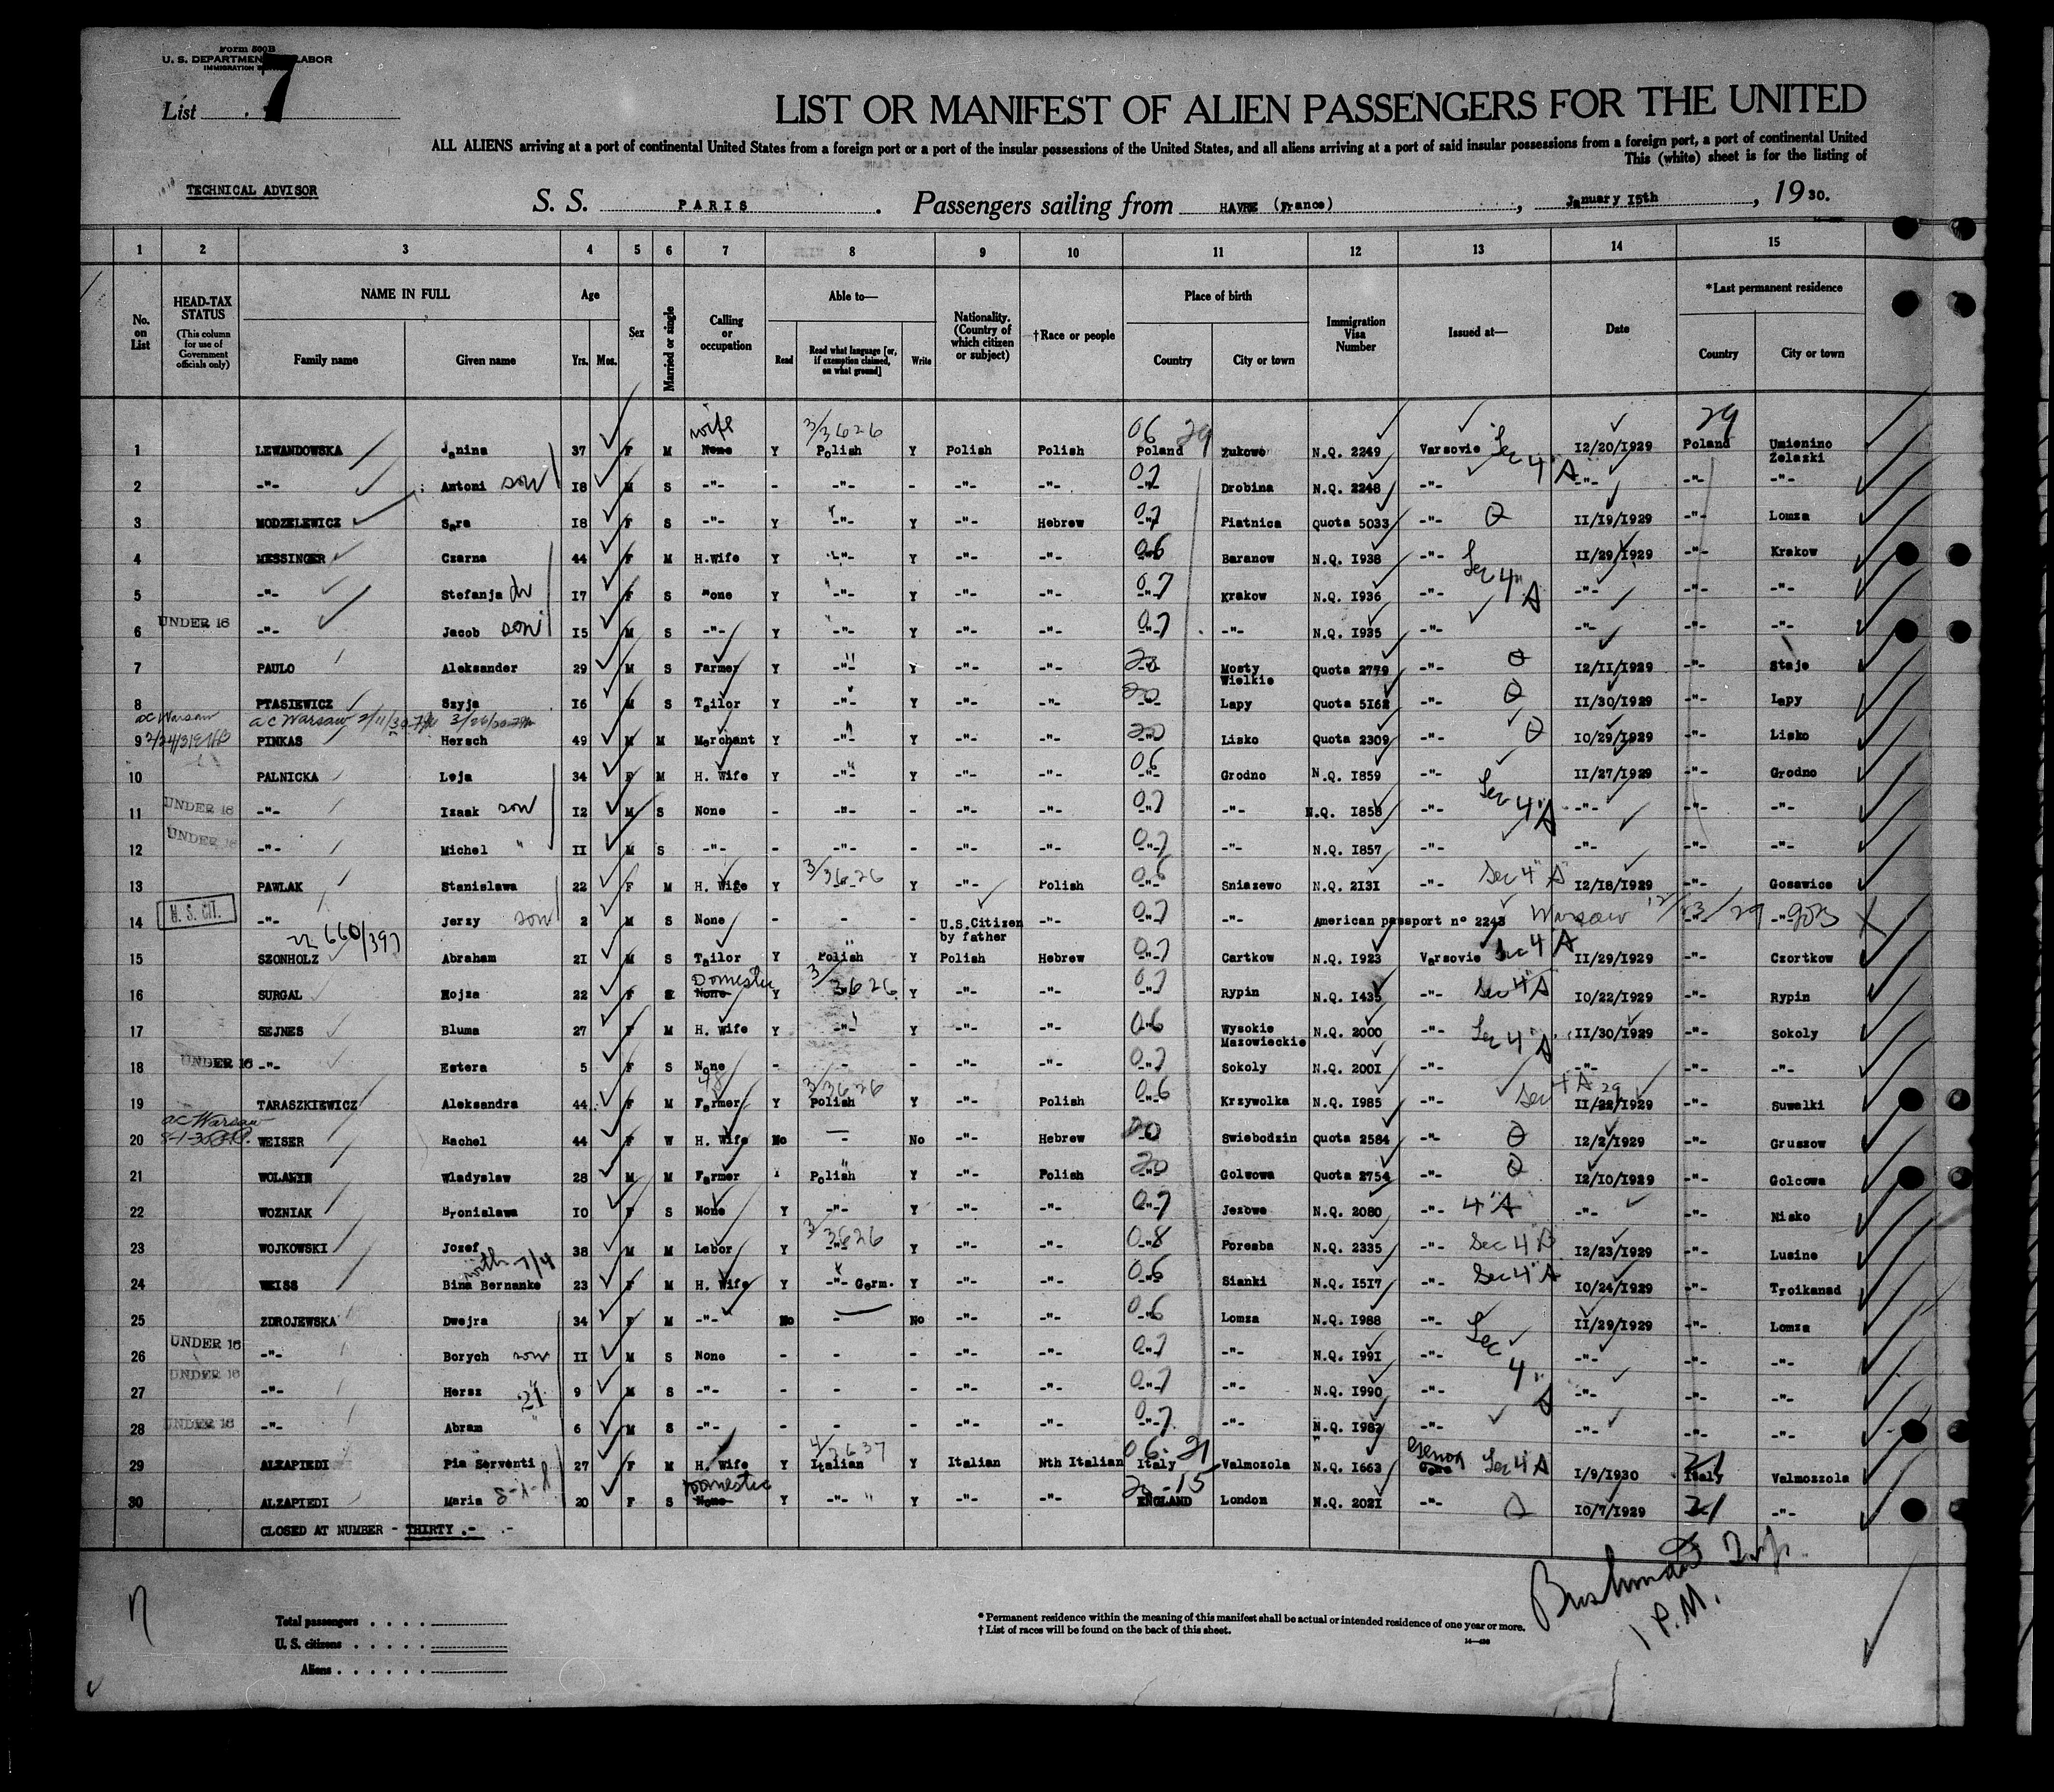 Form 500B
U. S. DEPARTMENT LABOR
IMMIGRATION
List 7
LIST OR MANIFEST OF ALIEN PASSENGERS FOR THE UNITED
ALL ALIENS arriving at a port of continental United States from a foreign port or a port of the insular possessions of the United States, and all aliens arriving at a port of said insular possessions from a foreign port, a port of continental United
This (white) sheet is for the listing of
TECHNICAL ADVISOR
S. S. PARIS. Passengers sailing from HAVRE (France), January 15th, 1930.
1 2 3 4 5 6 7 8 9 10 11 12 13 14 15
No. on List
HEAD-TAX STATUS (This column for use of Government officials only)
NAME IN FULL Family name Given name
Age Yrs. Mos.
Sex
Married or single
Calling or occupation
Able to— Read Read what language [or, if exemption claimed, on what ground] Write
Nationality. (Country of which citizen or subject)
†Race or people
Place of birth Country City or town
Immigration Visa Number
Issued at—
Date
*Last permanent residence Country City or town
wife 3/3626 06 29 29
1 LEWANDOWSKA Janina 37 F M None Y Polish Y Polish Polish Poland Zukowo N.Q. 2249 Varsovie Sec 4 A 12/20/1929 Poland Umienino Zelaski
2 -"- Antoni son 18 M S -"- - -"- - -"- -"- 07 -"- Drobina N.Q. 2248 -"- -"- -"- -"-
3 MODZELEWICZ Sara 18 F S -"- Y -"- Y -"- Hebrew 07 -"- Piatnica Quota 5033 -"- Q 11/19/1929 -"- Lomza
4 MESSINGER Czarna 44 F M H.Wife Y -"- Y -"- -"- 06 -"- Baranow N.Q. 1938 -"- Sec 4 A 11/29/1929 -"- Krakow
5 -"- Stefanja 17 F S None Y -"- Y -"- -"- 07 -"- Krakow N.Q. 1936 -"- -"- -"- -"-
6 UNDER 16 -"- Jacob son 15 M S -"- Y -"- Y -"- -"- 07 -"- -"- N.Q. 1935 -"- -"- -"- -"-
7 PAULO Aleksander 29 M S Farmer Y -"- Y -"- -"- 20 -"- Mosty Wielkie Quota 2779 -"- Q 12/11/1929 -"- Staje
8 PTASIEWICZ Szyja 16 M S Tailor Y -"- Y -"- -"- 20 -"- Lapy Quota 5162 -"- Q 11/30/1929 -"- Lapy
ac Warsaw ac Warsaw
9 PINKAS Hersch 49 M M Merchant Y -"- Y -"- -"- 20 -"- Lisko Quota 2309 -"- Q 10/29/1929 -"- Lisko
10 PALNICKA Leja 34 F M H. Wife Y -"- Y -"- -"- 06 -"- Grodno N.Q. 1859 -"- Sec 4 A 11/27/1929 -"- Grodno
11 UNDER 16 -"- Izaak son 12 M S None - -"- - -"- -"- 07 -"- -"- N.Q. 1858 -"- -"- -"- -"-
12 UNDER 16 -"- Michel " 11 M S -"- - -"- - -"- -"- 07 -"- -"- N.Q. 1857 -"- -"- -"- -"-
13 PAWLAK Stanislawa 22 F M H. Wife Y 3/3626 -"- Y -"- Polish 06 -"- Sniazewo N.Q. 2131 -"- Sec 4 A 12/18/1929 -"- Gosawice
14 U. S. CIT. -"- Jerzy son 2 M S None - - - U.S.Citizen by father -"- 07 -"- -"- American passport n° 2243 Warsaw 12/13/29 -"- -"-
660/397
15 SZONHOLZ Abraham 21 M S Tailor Y Polish Y Polish Hebrew 07 -"- Cartkow N.Q. 1923 Varsovie Sec 4 A 11/29/1929 -"- Czortkow
Domestic 3/3626
16 SURGAL Hojza 22 F S None Y -"- Y -"- -"- 07 -"- Rypin N.Q. 1435 -"- Sec 4 A 10/22/1929 -"- Rypin
17 SEJNES Bluma 27 F M H. Wife Y -"- Y -"- -"- 06 -"- Wysokie Mazowieckie N.Q. 2000 -"- Sec 4 A 11/30/1929 -"- Sokoly
18 UNDER 16 -"- Estera 5 F S None - - - -"- -"- 07 -"- Sokoly N.Q. 2001 -"- -"- -"- -"-
48 3/3626
19 TARASZKIEWICZ Aleksandra 44 F M Farmer Y Polish Y -"- Polish 06 -"- Krzywolka N.Q. 1985 -"- Sec 4 A 29 11/22/1929 -"- Suwalki
ac Warsaw
20 WEISER Rachel 44 F W H. Wife No - No -"- Hebrew 20 -"- Swiebodzin Quota 2584 -"- Q 12/2/1929 -"- Gruszow
21 WOLANYN Wladyslaw 28 M M Farmer Polish Y -"- Polish 20 -"- Golwowa Quota 2754 -"- Q 12/10/1929 -"- Golcowa
22 WOZNIAK Bronislawa 10 F S None Y -"- Y -"- -"- 07 -"- Jezowe N.Q. 2080 -"- 4 A -"- -"- Nisko
23 WOJKOWSKI Jozef 38 M M Labor Y 3/3626 -"- Y -"- -"- 08 -"- Poresba N.Q. 2335 -"- Sec 4 B 12/23/1929 -"- Lusine
24 WEISS Bina Bernanke 23 F M H. Wife Y -"- Germ. Y -"- -"- 06 -"- Sianki N.Q. 1517 -"- Sec 4 A 10/24/1929 -"- Troikanad
25 ZDROJEWSKA Dwejra 34 F M -"- No - No -"- -"- 06 -"- Lomza N.Q. 1988 -"- Sec 4 A 11/29/1929 -"- Lomza
26 UNDER 16 -"- Borych son 11 M S None - - - -"- -"- 07 -"- -"- N.Q. 1991 -"- -"- -"- -"-
27 UNDER 16 -"- Hersz 9 M S -"- - - - -"- -"- 07 -"- -"- N.Q. 1990 -"- -"- -"- -"-
21
28 UNDER 16 -"- Abram 6 M S -"- - - - -"- -"- 07 -"- -"- N.Q. 1987 -"- -"- -"- -"-
29 ALZAPIEDI Pia Serventi 27 F M H. Wife Y Italian Y Italian Nth Italian 06 21 Italy Valmozola N.Q. 1663 Genoa Sec 4 A 1/9/1930 Italy Valmozzola
Domestic 15
30 ALZAPIEDI Maria 20 F S None Y -"- Y -"- -"- ENGLAND London N.Q. 2021 -"- Q 10/7/1929 21 -"-
CLOSED AT NUMBER - THIRTY .-
Total passengers
U. S. citizens
Aliens
* Permanent residence within the meaning of this manifest shall be actual or intended residence of one year or more.
† List of races will be found on the back of this sheet.
1 P.M.